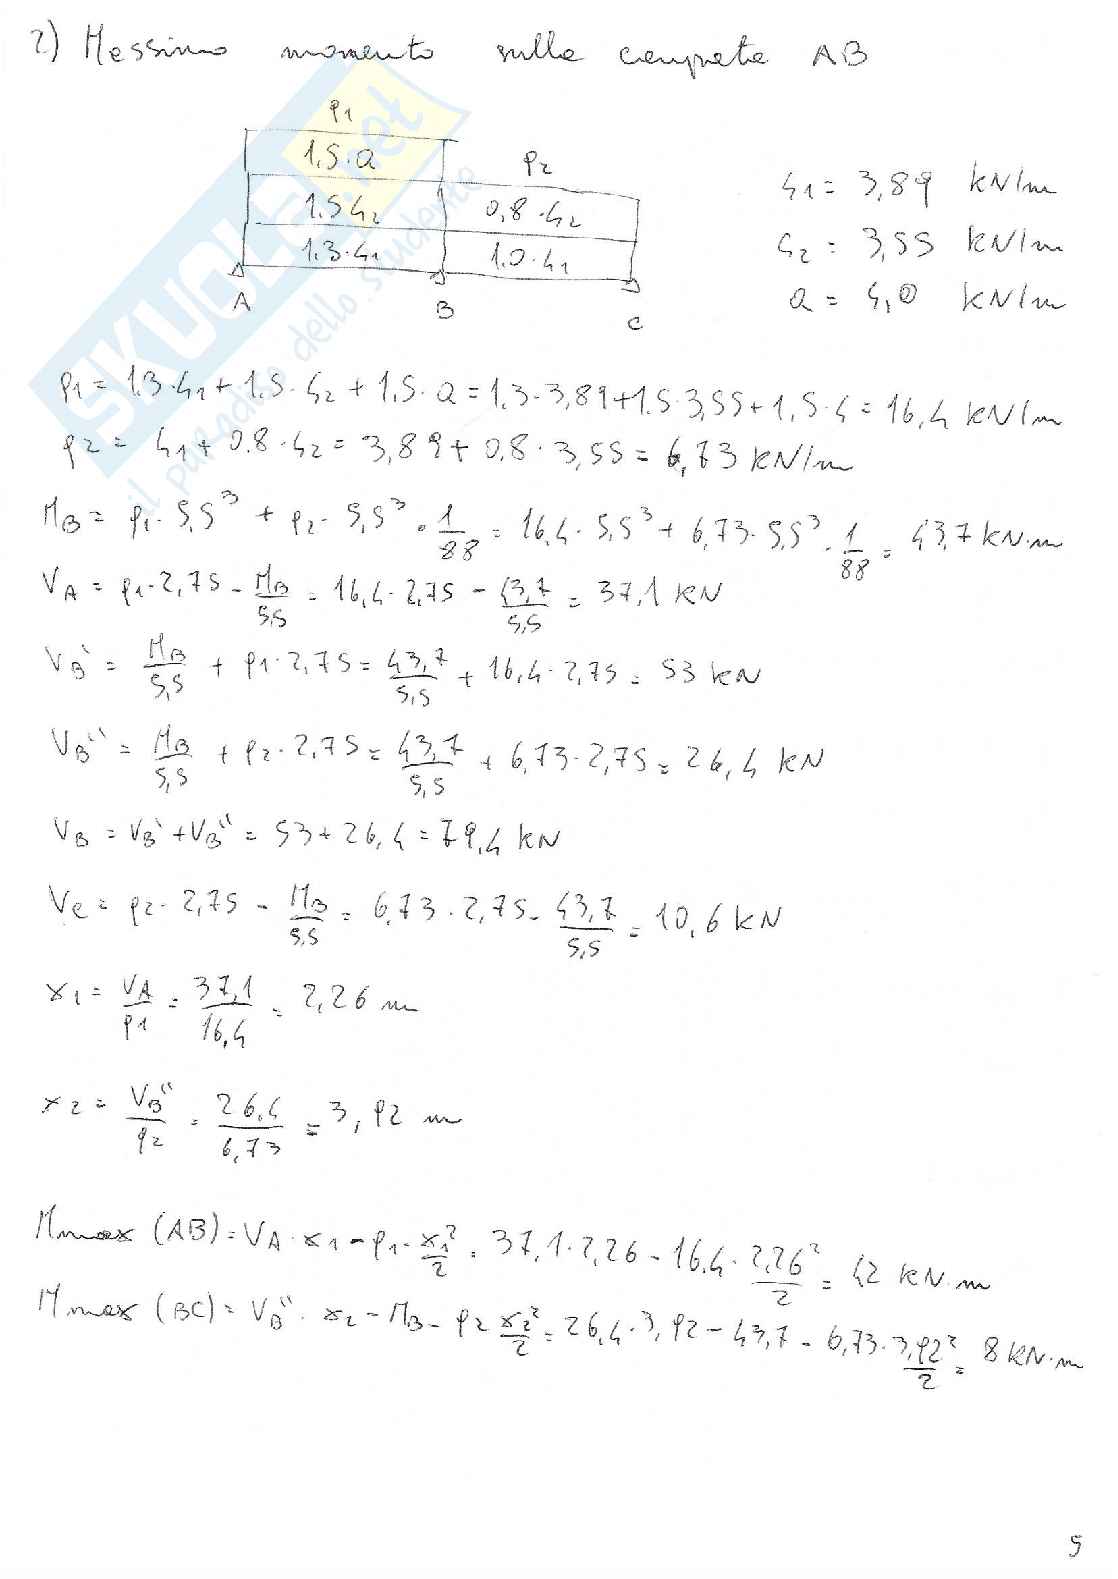 2) Massimo momento sulla campata AB
p1
1.5·a
p2
1.5 G2
0,8·G2
1.3·G1
1.0·G1
A
B
C
G1 = 3,89 kN/m
G2 = 3,55 kN/m
a = 4,0 kN/m
SKUOLA.net
il paradiso dello studente
p1 = 1.3·G1 + 1.5·G2 + 1,5·a = 1,3·3,89 + 1.5·3,55 + 1,5·4 = 16,4 kN/m
p2 = G1 + 0.8·G2 = 3,89 + 0,8·3,55 = 6,73 kN/m
MB = p1·5,5³ + p2·5,5³·1/88 = 16,4·5,5³ + 6,73·5,5³·1/88 = 43,7 kN·m
VA = p1·2,75 - MB/5,5 = 16,4·2,75 - 43,7/5,5 = 37,1 kN
VB' = MB/5,5 + p1·2,75 = 43,7/5,5 + 16,4·2,75 = 53 kN
VB'' = MB/5,5 + p2·2,75 = 43,7/5,5 + 6,73·2,75 = 26,4 kN
VB = VB' + VB'' = 53 + 26,4 = 79,4 kN
Vc = p2·2,75 - MB/5,5 = 6,73·2,75 - 43,7/5,5 = 10,6 kN
x1 = VA/p1 = 37,1/16,4 = 2,26 m
x2 = VB''/p2 = 26,4/6,73 = 3,92 m
Mmax (AB) = VA·x1 - p1·x1²/2 = 37,1·2,26 - 16,4·2,26²/2 = 42 kN·m
Mmax (BC) = VB''·x2 - MB - p2 x2²/2 = 26,4·3,92 - 43,7 - 6,73·3,92²/2 = 8 kN·m
5